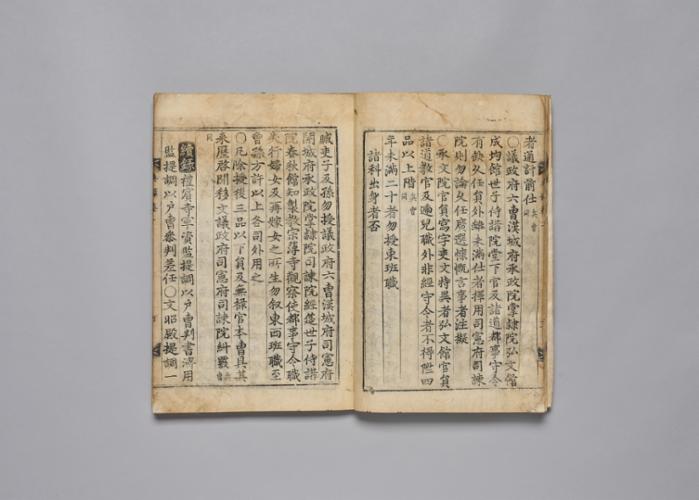 者通計前仕兵曹同
○議政府六曹漢城府承政院掌隷院弘文館
成均館世子侍講院堂下官及諸道都事守令
有缺久任員外雖未滿仕者擇用司憲府司諫
院則勿論久任廣選慷慨言事者注擬
○承文院官員寫字吏文特異者弘文館官員
諸道敎官及邊職外非經守令者不得陞四
品以上階兵曹同
年未滿二十者勿授東班職
諸科出身者否
贓吏子及孫勿授議政府六曹漢城府司憲府
開城府承政院掌隷院司諫院經筵世子侍講
院春秋館知製敎宗簿寺觀察使都事守令職
失行婦女及再嫁女之所生勿敍東西班職至
曾孫方許以上各司外用之
○凡除授後三品以下員及無祿官本曹具其
來歷移文司憲府司諫院糾覈兵曹同
續錄禮賓寺軍資監提調以戶曹判書濟用
監提調以戶曹參判差任○文昭殿提調一